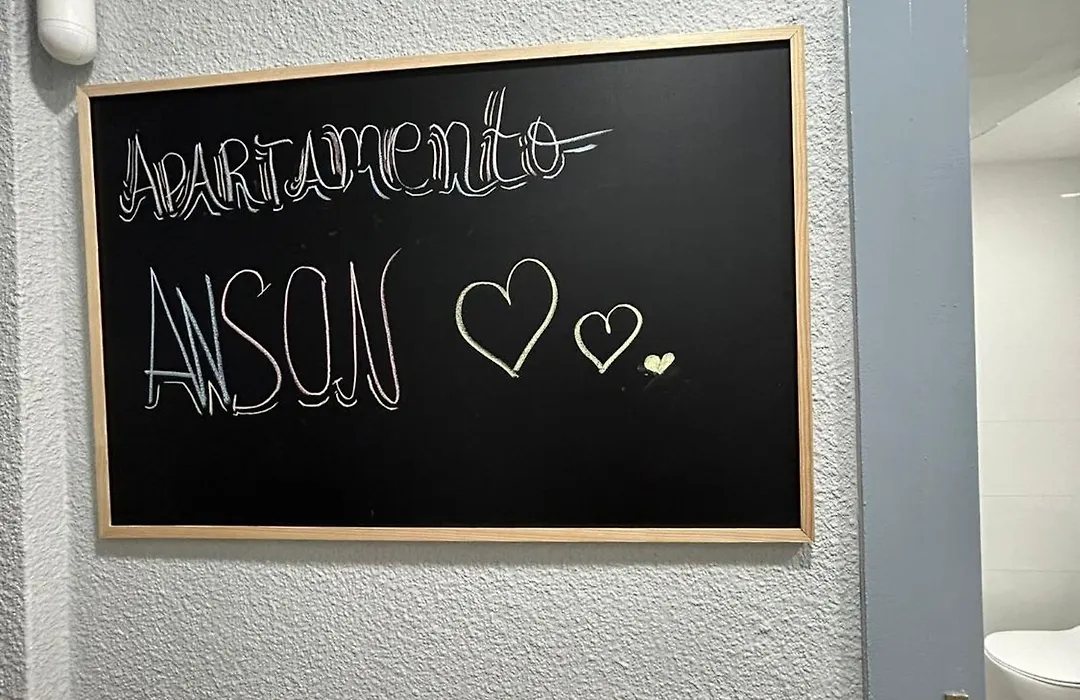 APARTAmento
ANSON